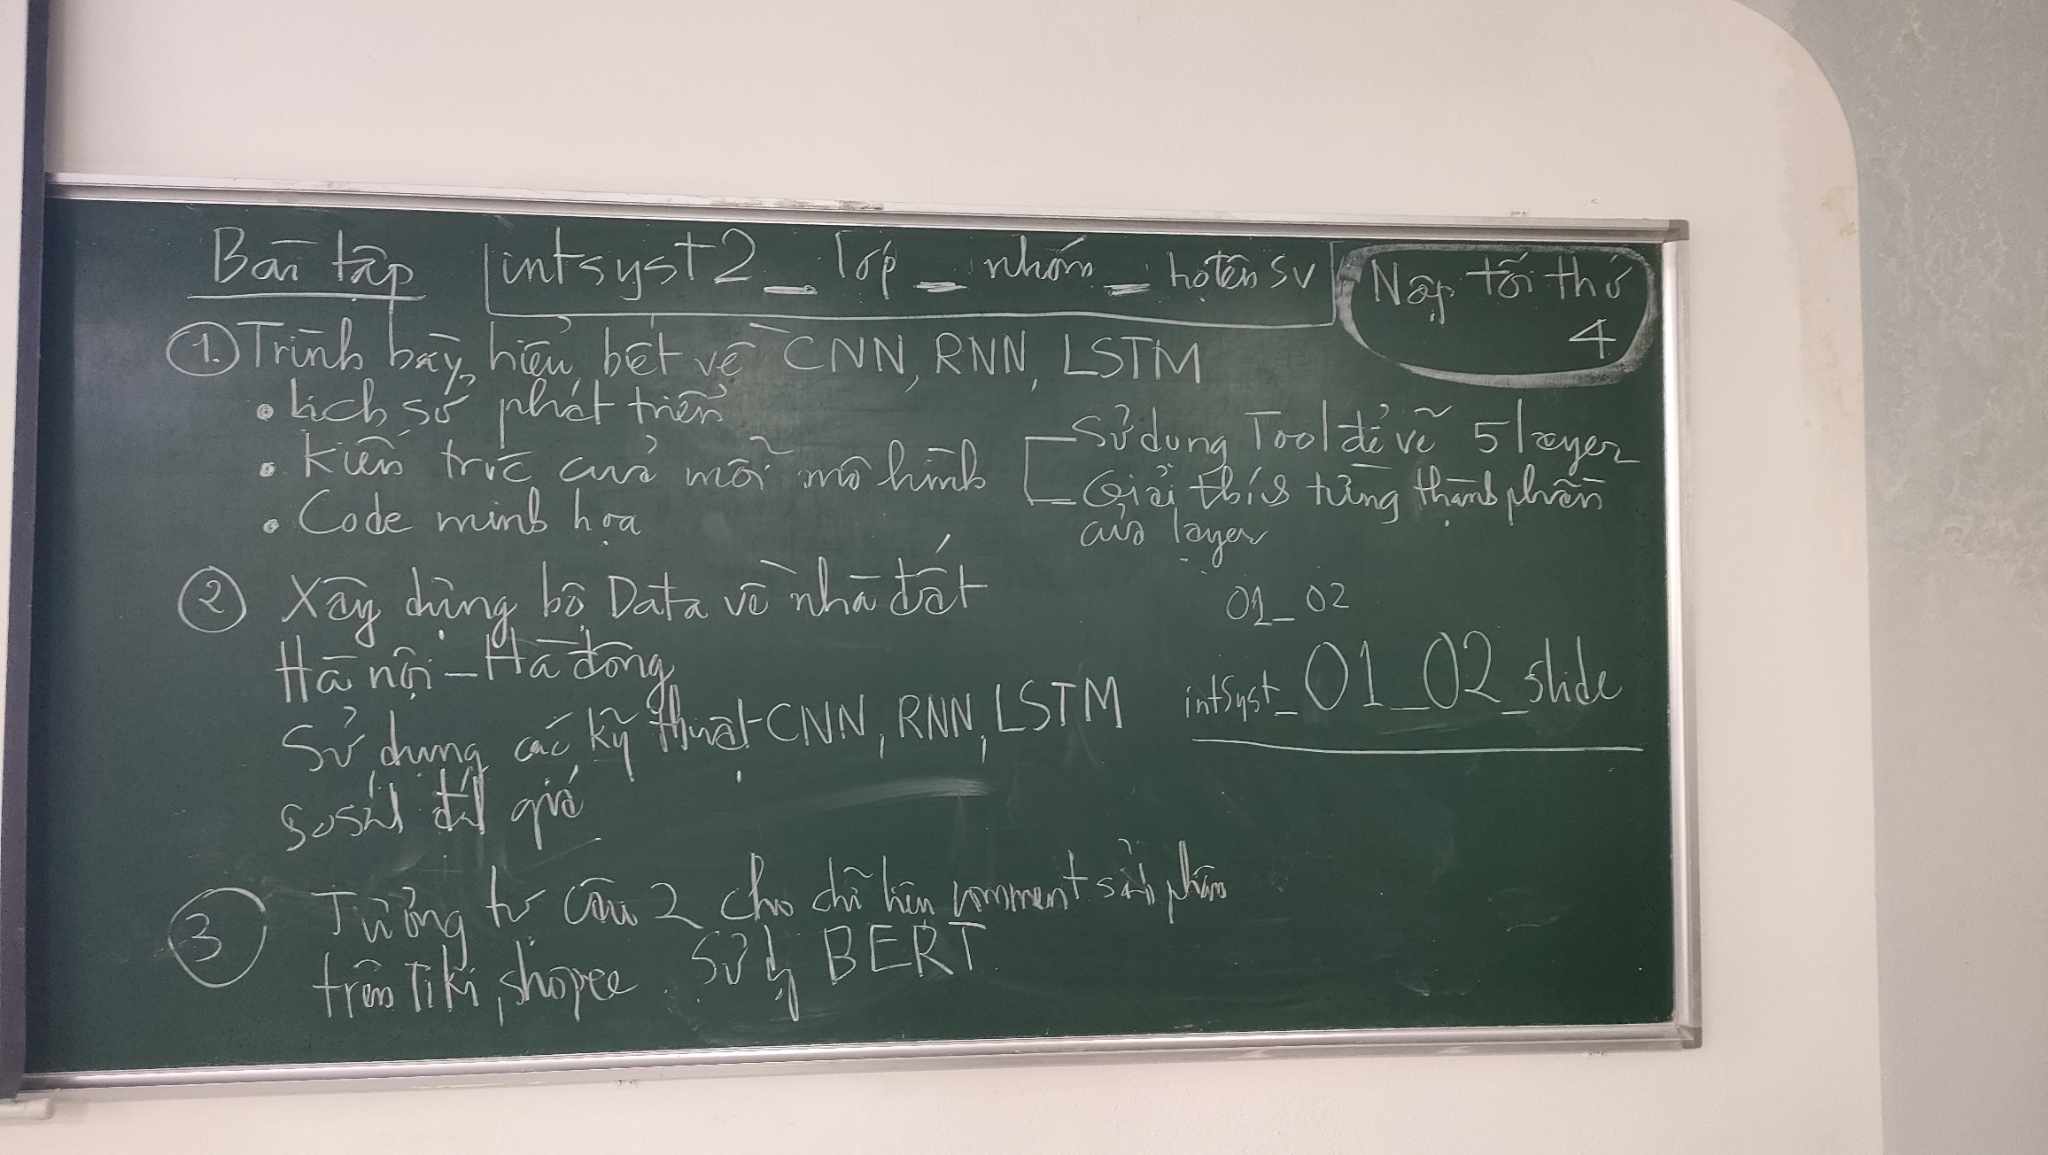 Bài tập
intsyst2 _ lớp _ nhóm _ họ tên SV
Nạp tối thứ
4
1. Trình bày hiểu biết về CNN, RNN, LSTM
• Lịch sử phát triển
• Kiến trúc của mỗi mô hình
Sử dụng Tool để vẽ 5 layer
Giải thích từng thành phần
của layer
• Code minh họa
2 Xây dựng bộ Data về nhà đất
Hà nội - Hà đông
Sử dụng các kỹ thuật CNN, RNN, LSTM
so sánh đánh giá
01_02
intSyst_01_02_slide
3 Tương tự câu 2 cho comment sản phẩm
trên Tiki, shopee. Sử dụng BERT